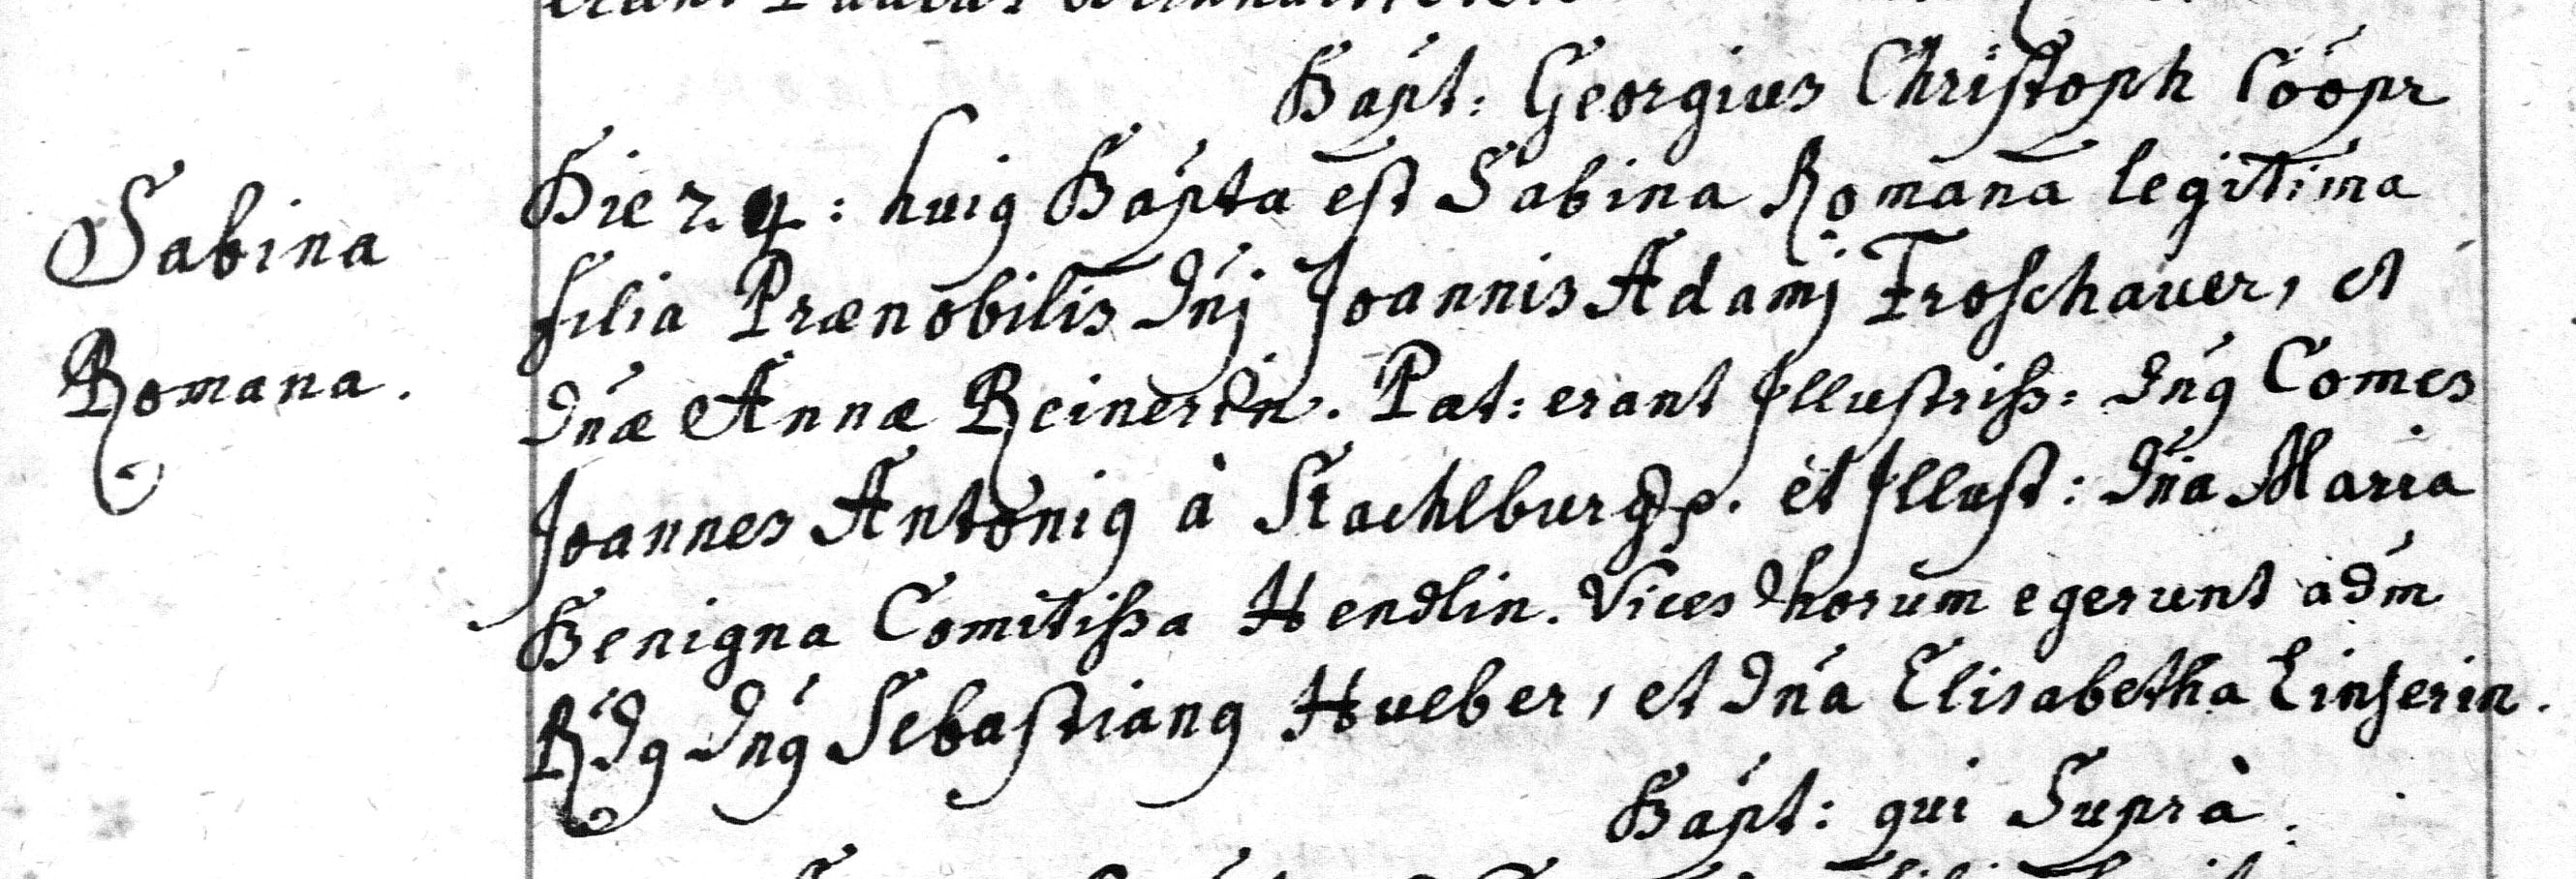 Bapt: Georgius Christoph Coopr
Sabina
Romana.
Die 24: huig Bapta est Sabina Romana legitima
filia Prænobilis Dnj Joannis Adamj Froschauer, et
Dnæ Annæ Reinerin. Pat: erant Illustriß: Dng Comes
Joannes Antonig à Stachlburg p. et Illust: Dna Maria
Benigna Comitißa Hendlin. Vices horum egerunt adm
Rdg Dng Sebastiang Hueber, et Dna Elisabetha Linserin.
Bapt: qui Suprà.